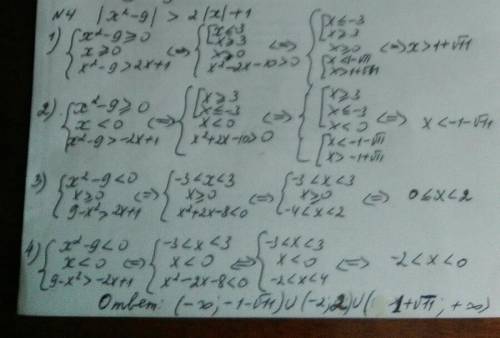 №4 |x²-9| > 2|x|+1
1) { x²-9≥0 ; x≥0 ; x²-9>2x+1 ⇔ { [ x≤-3 ; x≥3 ; x≥0 ; x²-2x-10>0 ⇔ { [ x≤-3 ; x≥3 ; x≥0 ; [ x<1-√11 ; x>1+√11 ⇔ x>1+√11
2) { x²-9≥0 ; x<0 ; x²-9>-2x+1 ⇔ { [ x≥3 ; x≤-3 ; x<0 ; x²+2x-10>0 ⇔ { [ x≥3 ; x≤-3 ; x<0 ; [ x<-1-√11 ; x>-1+√11 ⇔ x<-1-√11
3) { x²-9<0 ; x≥0 ; 9-x²>2x+1 ⇔ { -3<x<3 ; x≥0 ; x²+2x-8<0 ⇔ { -3<x<3 ; x≥0 ; -4<x<2 ⇔ 0≤x<2
4) { x²-9<0 ; x<0 ; 9-x²>-2x+1 ⇔ { -3<x<3 ; x<0 ; x²-2x-8<0 ⇔ { -3<x<3 ; x<0 ; -2<x<4 ⇔ -2<x<0
Ответ: (-∞; -1-√11)∪(-2; 2)∪( 1+√11; +∞)